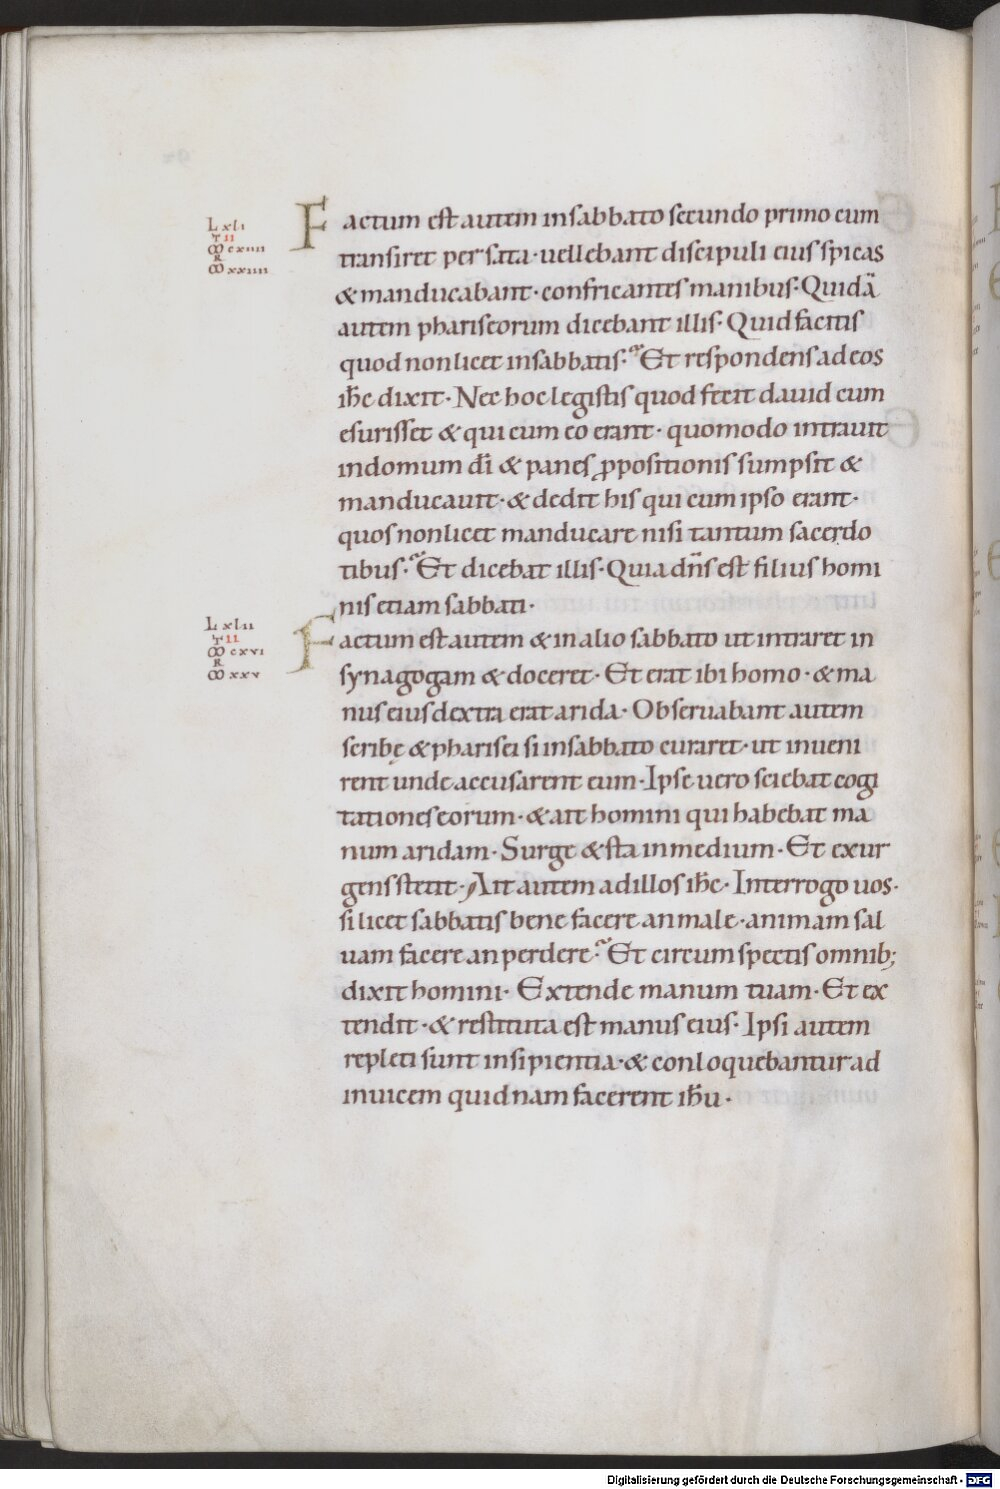 L xli
T II
ꝏ cxiiii
R
ꝏ xxiiii
Factum est autem insabbato secundo primo cum
transiret per sata· uellebant discipuli eius spicas
& manducabant· confricantes manibus· Quidā
autem phariseorum dicebant illis· Quid facitis
quod non licet insabbatis· Et respondens ad eos
ihc dixit· Nec hoc legistis quod fecit dauid cum
esurisset & qui cum eo erant· quomodo intrauit
indomum dī & panes ꝓpositionis sumpsit &
manducauit· & dedit his qui cum ipso erant·
quos non licet manducare nisi tantum sacerdo
tibus· Et dicebat illis· Quia dn̄s est filius homi
nis etiam sabbati·
L xlii
T II
ꝏ cxvi
R
ꝏ xxv
Factum est autem & in alio sabbato ut intraret in
synagogam & doceret· Et erat ibi homo· & ma
nus eius dextra erat arida· Obseruabant autem
scribę & pharisei si insabbato curaret· ut inueni
rent unde accusarent eum· Ipse uero sciebat cogi
tationes eorum· & ait homini qui habebat ma
num aridam· Surge & sta in medium· Et exur
gens stetit· Ait autem ad illos ihc· Interrogo uos·
si licet sabbatis bene facere an male· animam sal
uam facere an perdere· Et circum spectis omnib;
dixit homini· Extende manum tuam· Et ex
tendit· & restituta est manus eius· Ipsi autem
repleti sunt insipientia· & conloquebantur ad
inuicem quid nam facerent ihu·
Digitalisierung gefördert durch die Deutsche Forschungsgemeinschaft - DFG